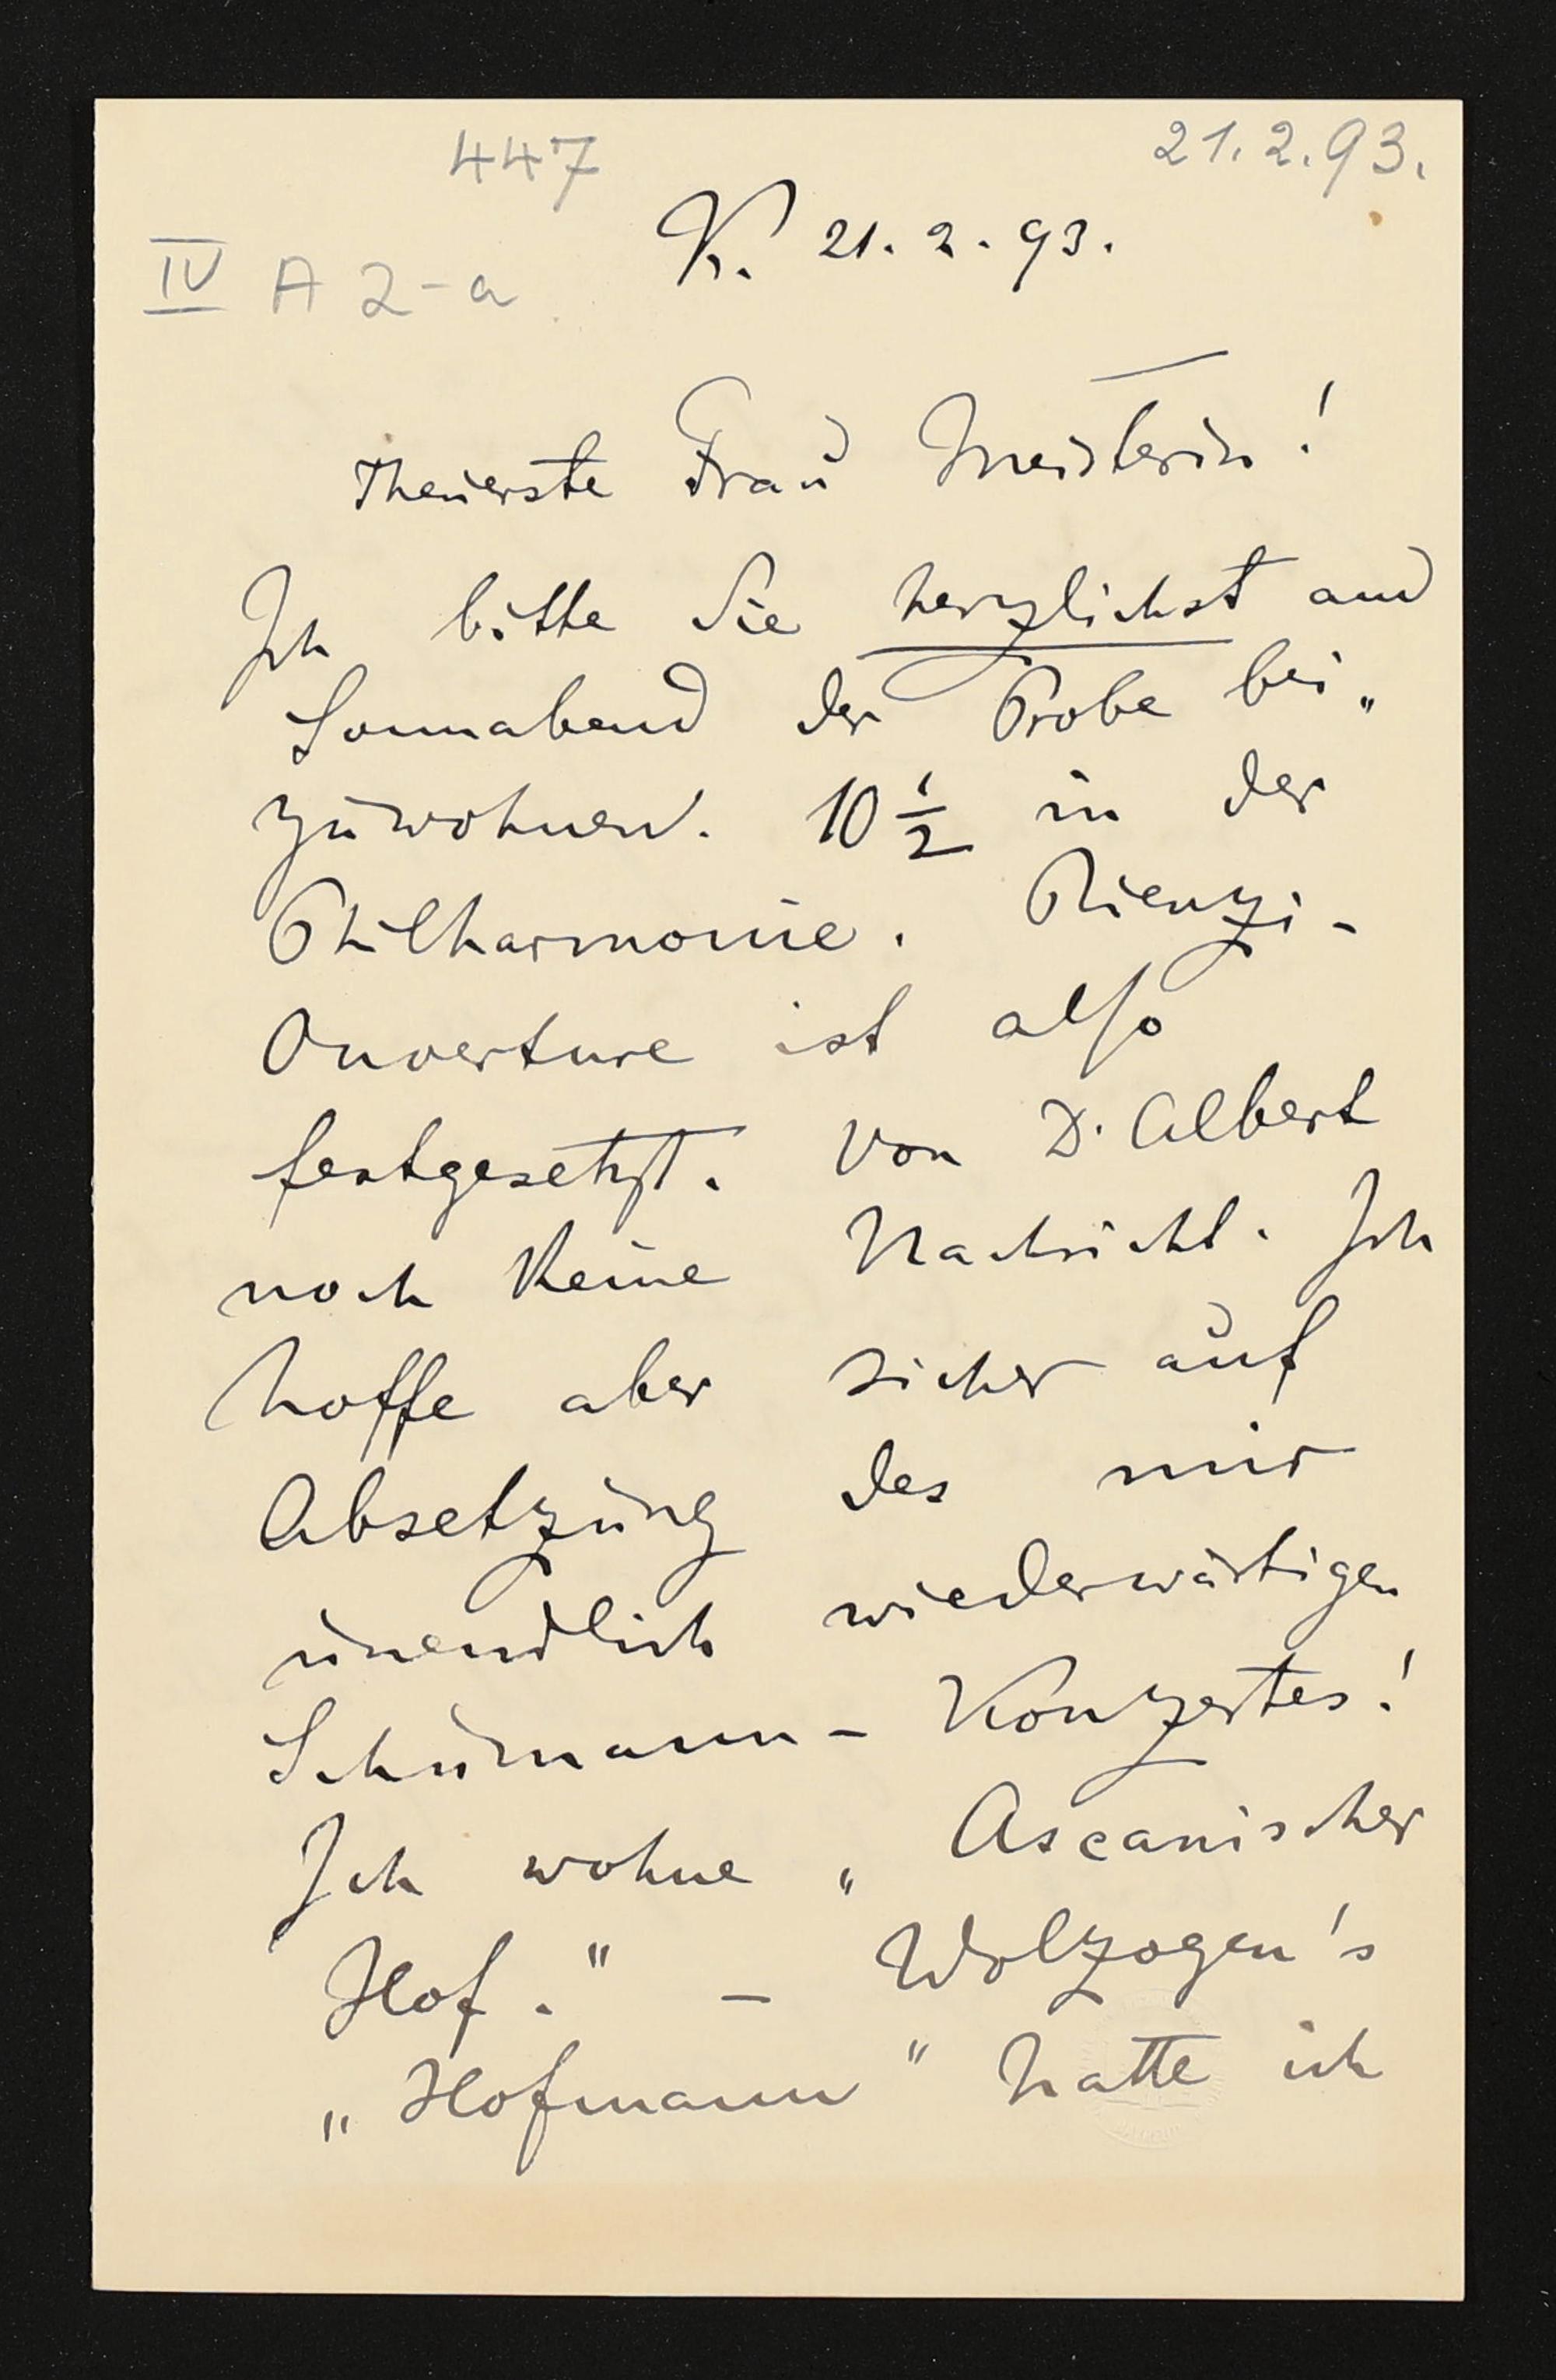 447
21.2.93.
K. 21.2.93.
IV A 2-a
Theuerste Frau Meisterin!
Ich bitte Sie herzlichst am
Sonnabend der Probe bei„
zuwohnen. 10 1/2 in der
Philharmonie. Rienzi-
Ouverture ist also
festgesetzt. Von D'Albert
noch keine Nachricht. Ich
hoffe aber sicher auf
Absetzung des mir
unendlich wiederwärtigen
Schumann-Konzertes!
Ich wohne „Ascanischer
Hof." – Wolzogen's
„Hofmann" hatte ich